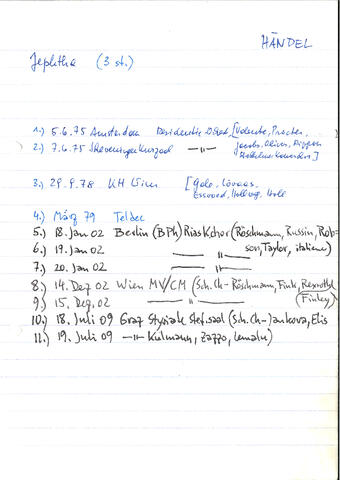 HÄNDEL
Jephtha (3 St.)
1.) 5.6.75 Amsterdam Residentie [Valente, Procter,
2.) 7.6.75 Scheveningen Kurzaal —"—
3.) 29.9.78 KH Wien [Gale, Lövaas,
Esswood, Hollweg,
4.) März 79 Teldec
5.) 18. Jan 02 Berlin (BPh) Rias Kchor (Röschmann, Russin, Rob=
6.) 19. Jan 02 —"— son, Taylor,
7.) 20. Jan 02 —"—
8.) 14. Dez 02 Wien MV/CM (Sch. Ch – Röschmann, Fink,
9.) 15. Dez. 02 —"— (Finley)
10.) 18. Juli 09 Graz Styriate Stef.saal (Sch. Ch – Jankova,
11.) 19. Juli 09 —"— Kulmann, Zazzo,